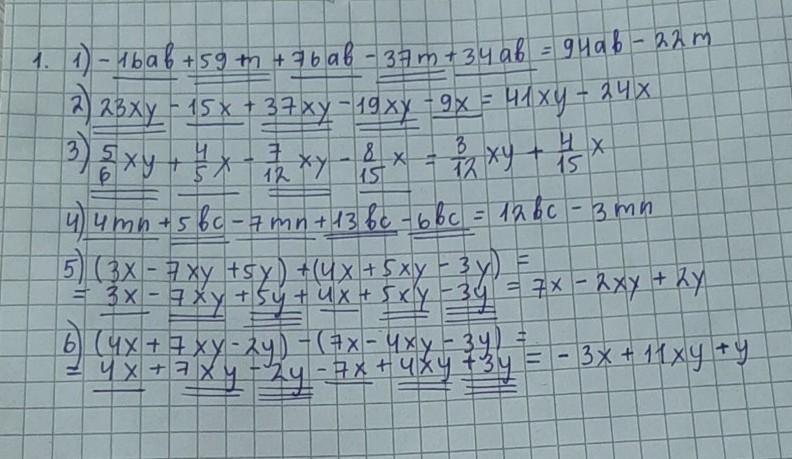 1. 1) -16ab + 59m + 76ab - 37m + 34ab = 94ab - 22m
2) 23xy - 15x + 37xy - 19xy - 9x = 41xy - 24x
3) 5/6 xy + 4/5 x - 7/12 xy - 8/15 x = 3/12 xy + 4/15 x
4) 4mn + 5bc - 7mn + 13bc - 6bc = 12bc - 3mn
5) (3x - 7xy + 5y) + (4x + 5xy - 3y) =
= 3x - 7xy + 5y + 4x + 5xy - 3y = 7x - 2xy + 2y
6) (4x + 7xy - 2y) - (7x - 4xy - 3y) =
= 4x + 7xy - 2y - 7x + 4xy + 3y = -3x + 11xy + y